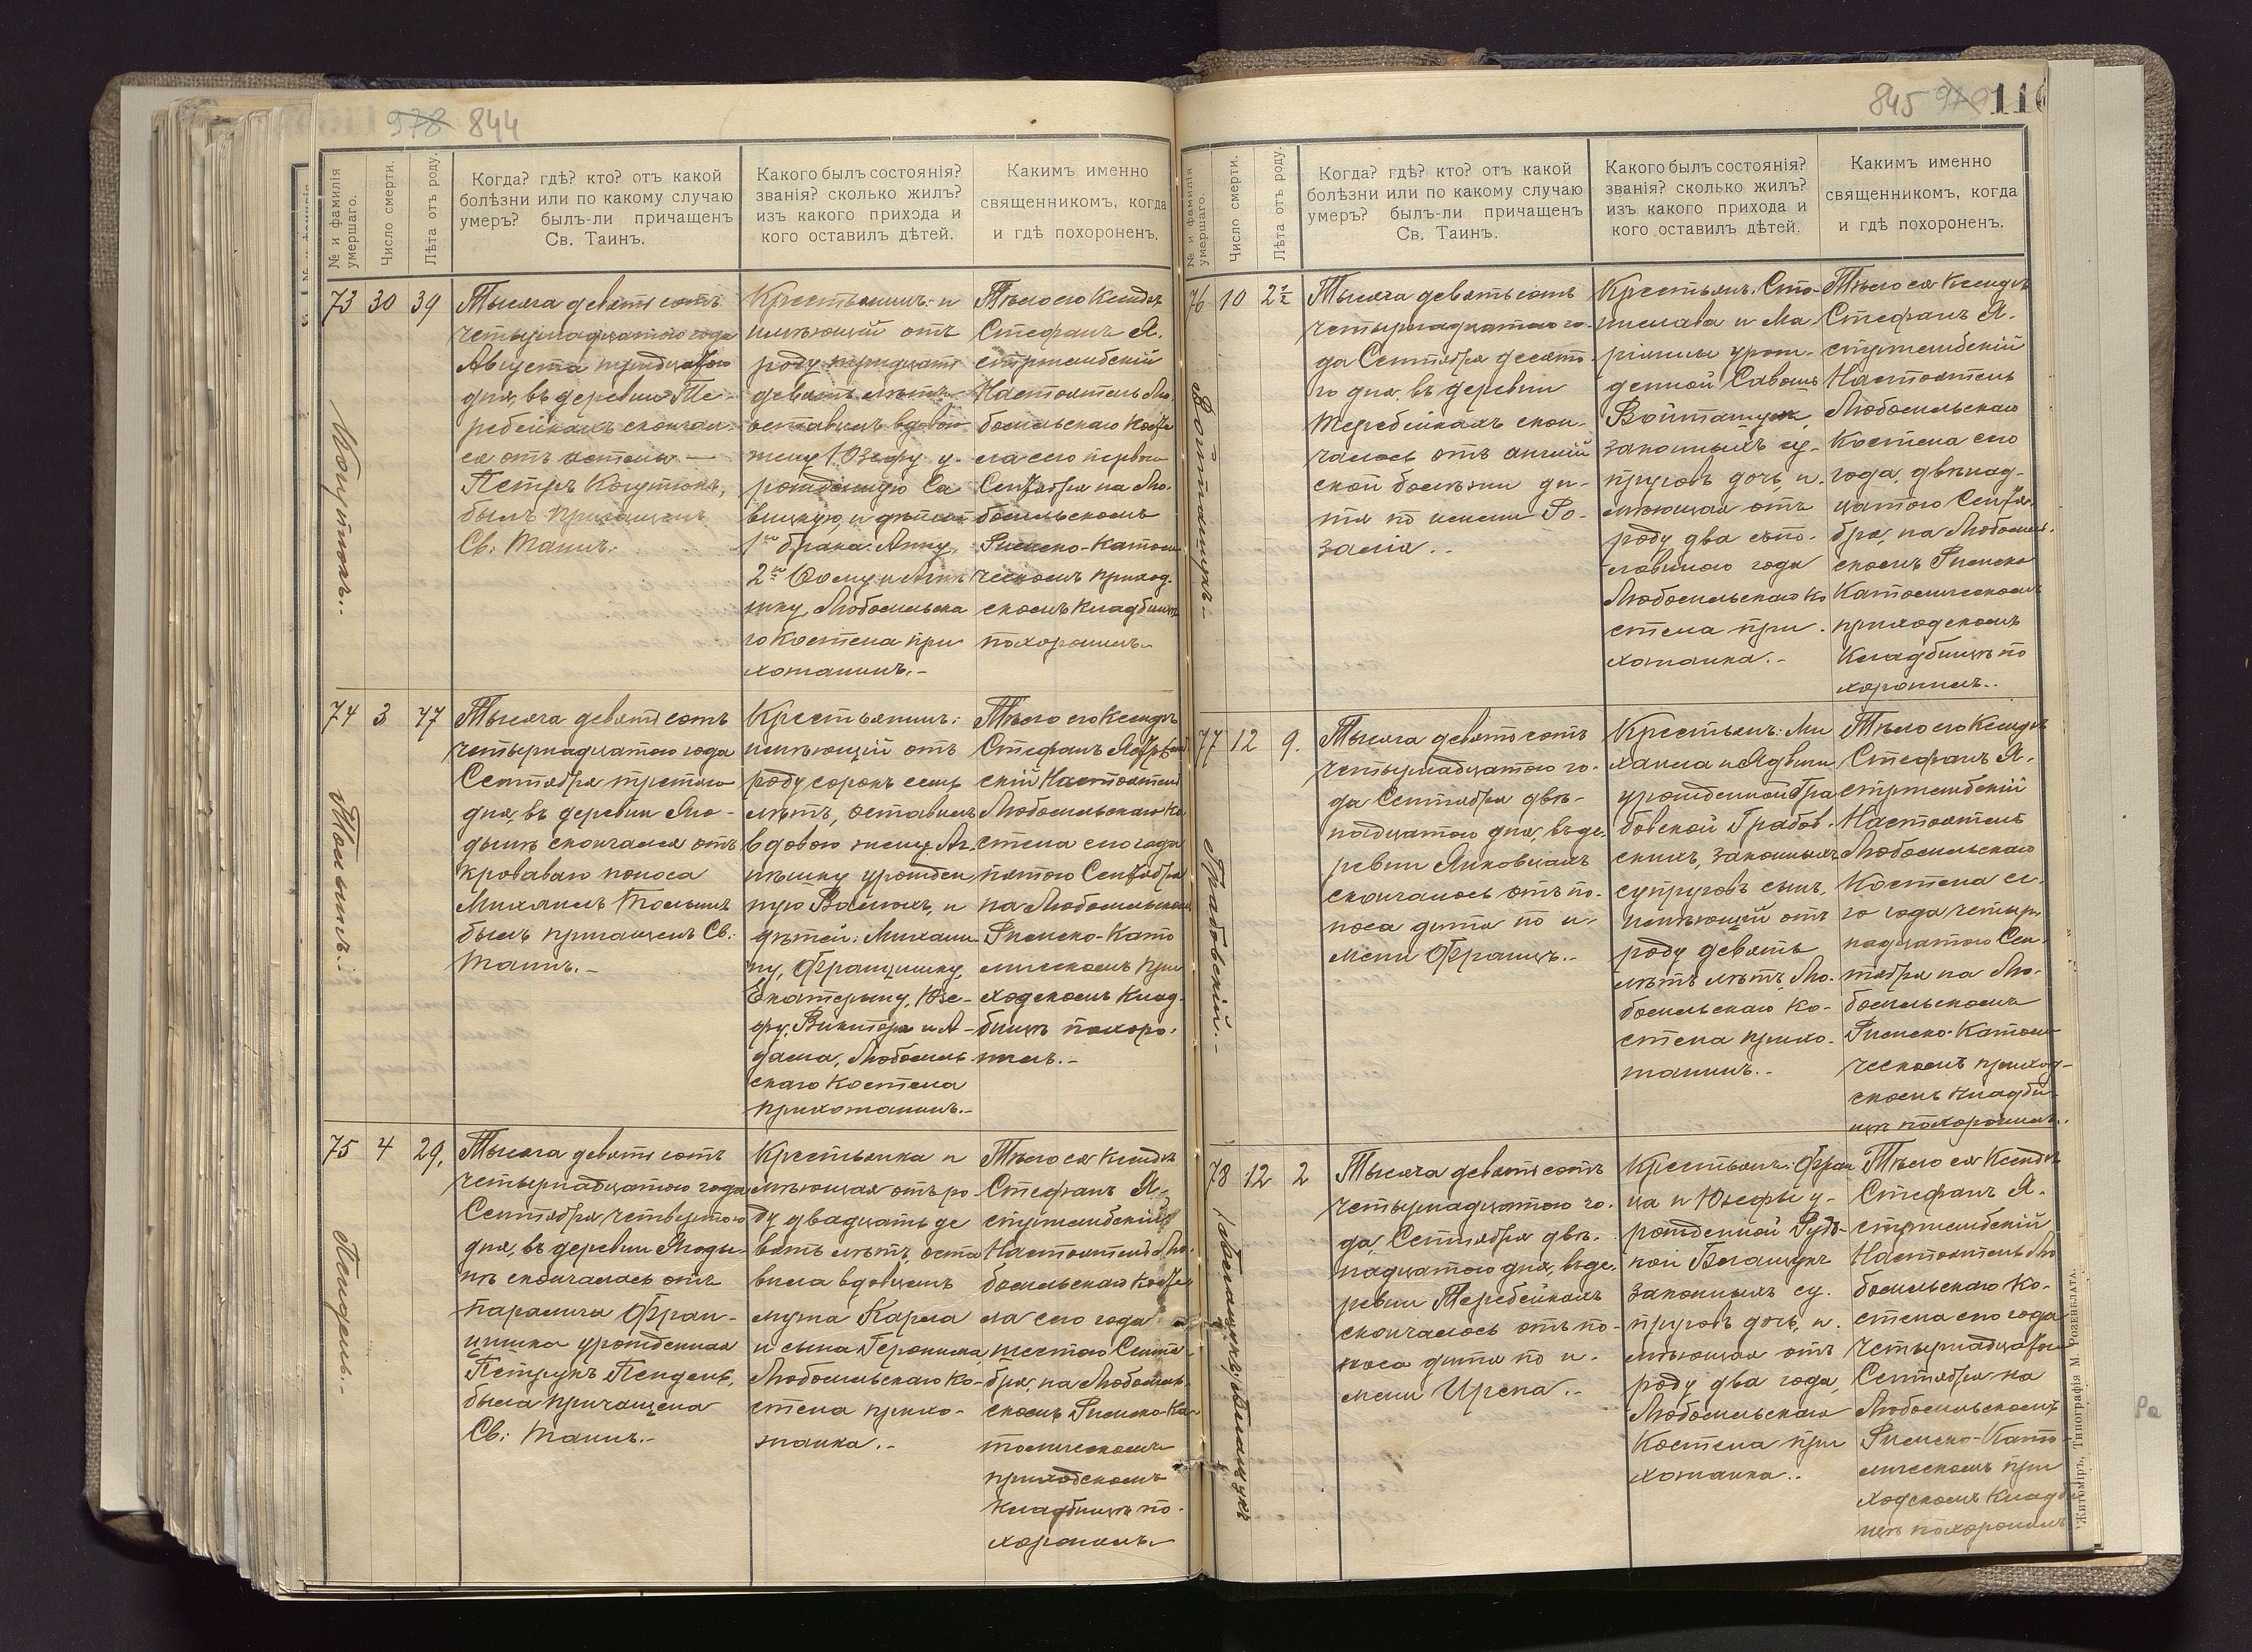 978 844
№ и фамилія умершаго.
Число смерти.
Лѣта отъ роду.
Когда? гдѣ? кто? отъ какой
болѣзни или по какому случаю
умеръ? былъ-ли причащенъ
Св. Таинъ.
Какого былъ состоянія?
званія? сколько жилъ?
изъ какого прихода и
кого оставилъ дѣтей.
Какимъ именно
священникомъ, когда
и гдѣ похороненъ.
73 30 39
Тысяча девятьсотъ
четырнадцатаго года
Августа тридцатаго
дня, въ деревни Те-
ребейкахъ скончал-
ся отъ
Петръ Когутюкъ,
былъ причащенъ
Св: Таинъ.
Крестьянинъ: и
имѣющій отъ
роду тридцать
девять лѣтъ
оставилъ вдовою
жену Юзефу у-
рожденную Са
вицкую, и дѣтей
1го брака: Анну,
2го
Любомльска
го Костела при
хожанинъ.-
Тѣло его Ксендзъ
Стефанъ Я-
стржембскій
Настоятель Лю
бомльскаго Косте
ла сего перваго
Сентября на Лю-
бомльскомъ
Римско-Католи
ческомъ приход-
скомъ Кладбищѣ
похоронилъ.-
74 3 47
Тысяча девятьсотъ
четырнадцатаго года
Сентября третьяго
дня, въ деревни Яго-
дынѣ скончался отъ
кроваваго поноса
Михаилъ
былъ причащенъ Св:
Таинъ.-
Крестьянинъ:
имѣющій отъ
роду сорокъ семь
лѣтъ, оставилъ
вдовою жену Аг-
нѣшку урожден
ную и
дѣтей: Михали-
ну, Францишку,
Екатерину, Юзе-
фу, Виктора и А-
дама, Любомль
скаго Костела
прихожанинъ.-
Тѣло его Ксендзъ
Стефанъ Ястржемб
скій Настоятель
Любомльскаго Ко
стела сего года
пятаго Сентября
на Любомльскомъ
Римско-Като
лическомъ при
ходскомъ Клад-
бищѣ похоро-
нилъ.-
75 4 29.
Тысяча девятьсотъ
четырнадцатаго года
Сентября четвертаго
дня, въ деревни Ягоды-
нѣ скончалась отъ
паралича Фран-
цишка урожденная
Петрукъ Пендель,
была причащена
Св: Таинъ.-
Крестьянка и
мѣющая отъ ро
ду двадцать де
вять лѣтъ, оста
вила вдовцемъ
мужа Карла
и сына Геронима,
Любомльскаго Ко-
стела прихо-
жанка.-
Тѣло ея Ксендзъ
Стефанъ Я-
стржембскій
Настоятель Лю-
бомльскаго Косте
ла сего года
шестаго Сентя
бря, на Любомль-
скомъ Римско-Ка-
толическомъ
приходскомъ
Кладбищѣ по-
хоронилъ.-
Когутюкъ.-
Пендель.-
845 979 110
№ и фамилія умершаго.
Число смерти.
Лѣта отъ роду.
Когда? гдѣ? кто? отъ какой
болѣзни или по какому случаю
умеръ? былъ-ли причащенъ
Св. Таинъ.
Какого былъ состоянія?
званія? сколько жилъ?
изъ какого прихода и
кого оставилъ дѣтей.
Какимъ именно
священникомъ, когда
и гдѣ похороненъ.
76 10 2½
Тысяча девятьсотъ
четырнадцатаго го-
да Сентября десята-
го дня, въ деревни
Теребейкахъ скон-
чалось отъ англій
ской болѣзни ди-
тя по имени Ро-
залія.-
Крестьянъ: Ста-
нислава и Ма-
ріянны урож-
денной
Войташукъ,
законныхъ су-
пруговъ дочь, и-
мѣющая отъ
роду два съ по-
ловиною года
Любомльскаго Ко
стела при-
хожанка.-
Тѣло ея Ксендзъ
Стефанъ Я-
стржембскій
Настоятель
Любомльскаго
Костела сего
года, двѣнад-
цатаго Сентя-
бря, на Любомль-
скомъ Римско
Католическомъ
приходскомъ
Кладбищѣ по
хоронилъ.-
77 12 9.
Тысяча девятьсотъ
четырнадцатаго го-
да Сентября двѣ-
надцатаго дня, въ де-
ревни Янковцахъ
скончалось отъ по-
носа дитя по и-
мени Францъ.-
Крестьянъ: Ми
хаила и Ядвиги
урожденной Гра
бовской Грабов-
скихъ, законныхъ
супруговъ сынъ,
имѣющій отъ
роду девять
лѣтъ лѣтъ, Лю-
бомльскаго Ко-
стела прихо-
жанинъ.-
Тѣло его Ксендзъ
Стефанъ Я-
стржембскій
Настоятель
Любомльскаго
Костела се-
го года четыр-
надцатаго Сен-
тября на Лю-
бомльскомъ
Римско-Католи
ческомъ приход-
скомъ Кладби-
щѣ похоронилъ.-
78 12 2
Тысяча девятьсотъ
четырнадцатаго го-
да, Сентября двѣ-
надцатаго дня, въ де-
ревни Теребейкахъ
скончалось отъ по-
носа дитя по и-
мени Ирена.-
Крестьянъ: Фран
ца и Юзефы у-
рожденной
законныхъ су-
пруговъ дочь, и-
мѣющая отъ
роду два года,
Любомльскаго
Костела при
хожанка.-
Тѣло ея Ксендзъ
Стефанъ Я-
стржембскій
Настоятель Лю
бомльскаго Ко-
стела сего года
четырнадцатаго
Сентября на
Любомльскомъ
Римско-Като-
лическомъ при
ходскомъ Кладби
щѣ похоронилъ
Войташукъ.-
Грабовскій.-
Житоміръ, Типографія М. Розенблата.